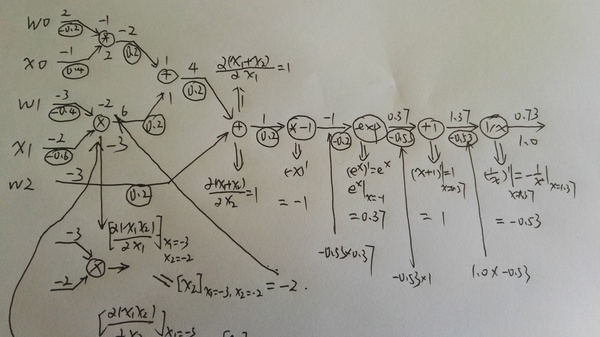 w0 2 -0.2 -1
* -2 0.2
x0 -1 0.4 2
1 + 4 0.2
2(x1+x2)/2x1 = 1
w1 -3 -0.4 -2
* 6 0.2 1
x1 -2 -0.6 -3
w2 -3 0.2
+ 1 0.2 *-1 -1 -0.2 exp 0.37 -0.53 +1 1.37 -0.53 1/x 0.73 1.0
2(x1+x2)/2x2 = 1
(-x)' = -1
(e^x)' = e^x
e^x|x=-1
= 0.37
(x+1)'=1 x=0.37
= 1
(1/x)'|x=1.37 = -1/x²|x=1.37
= -0.53
-0.53×0.37
-0.53×1
1.0×-0.53
-3
* →
-2
[2(x1x2)/2x1] x1=-3 x2=-2
= [x2] x1=-3, x2=-2 = -2.
[2(x1x2)/2x2] x1=-3